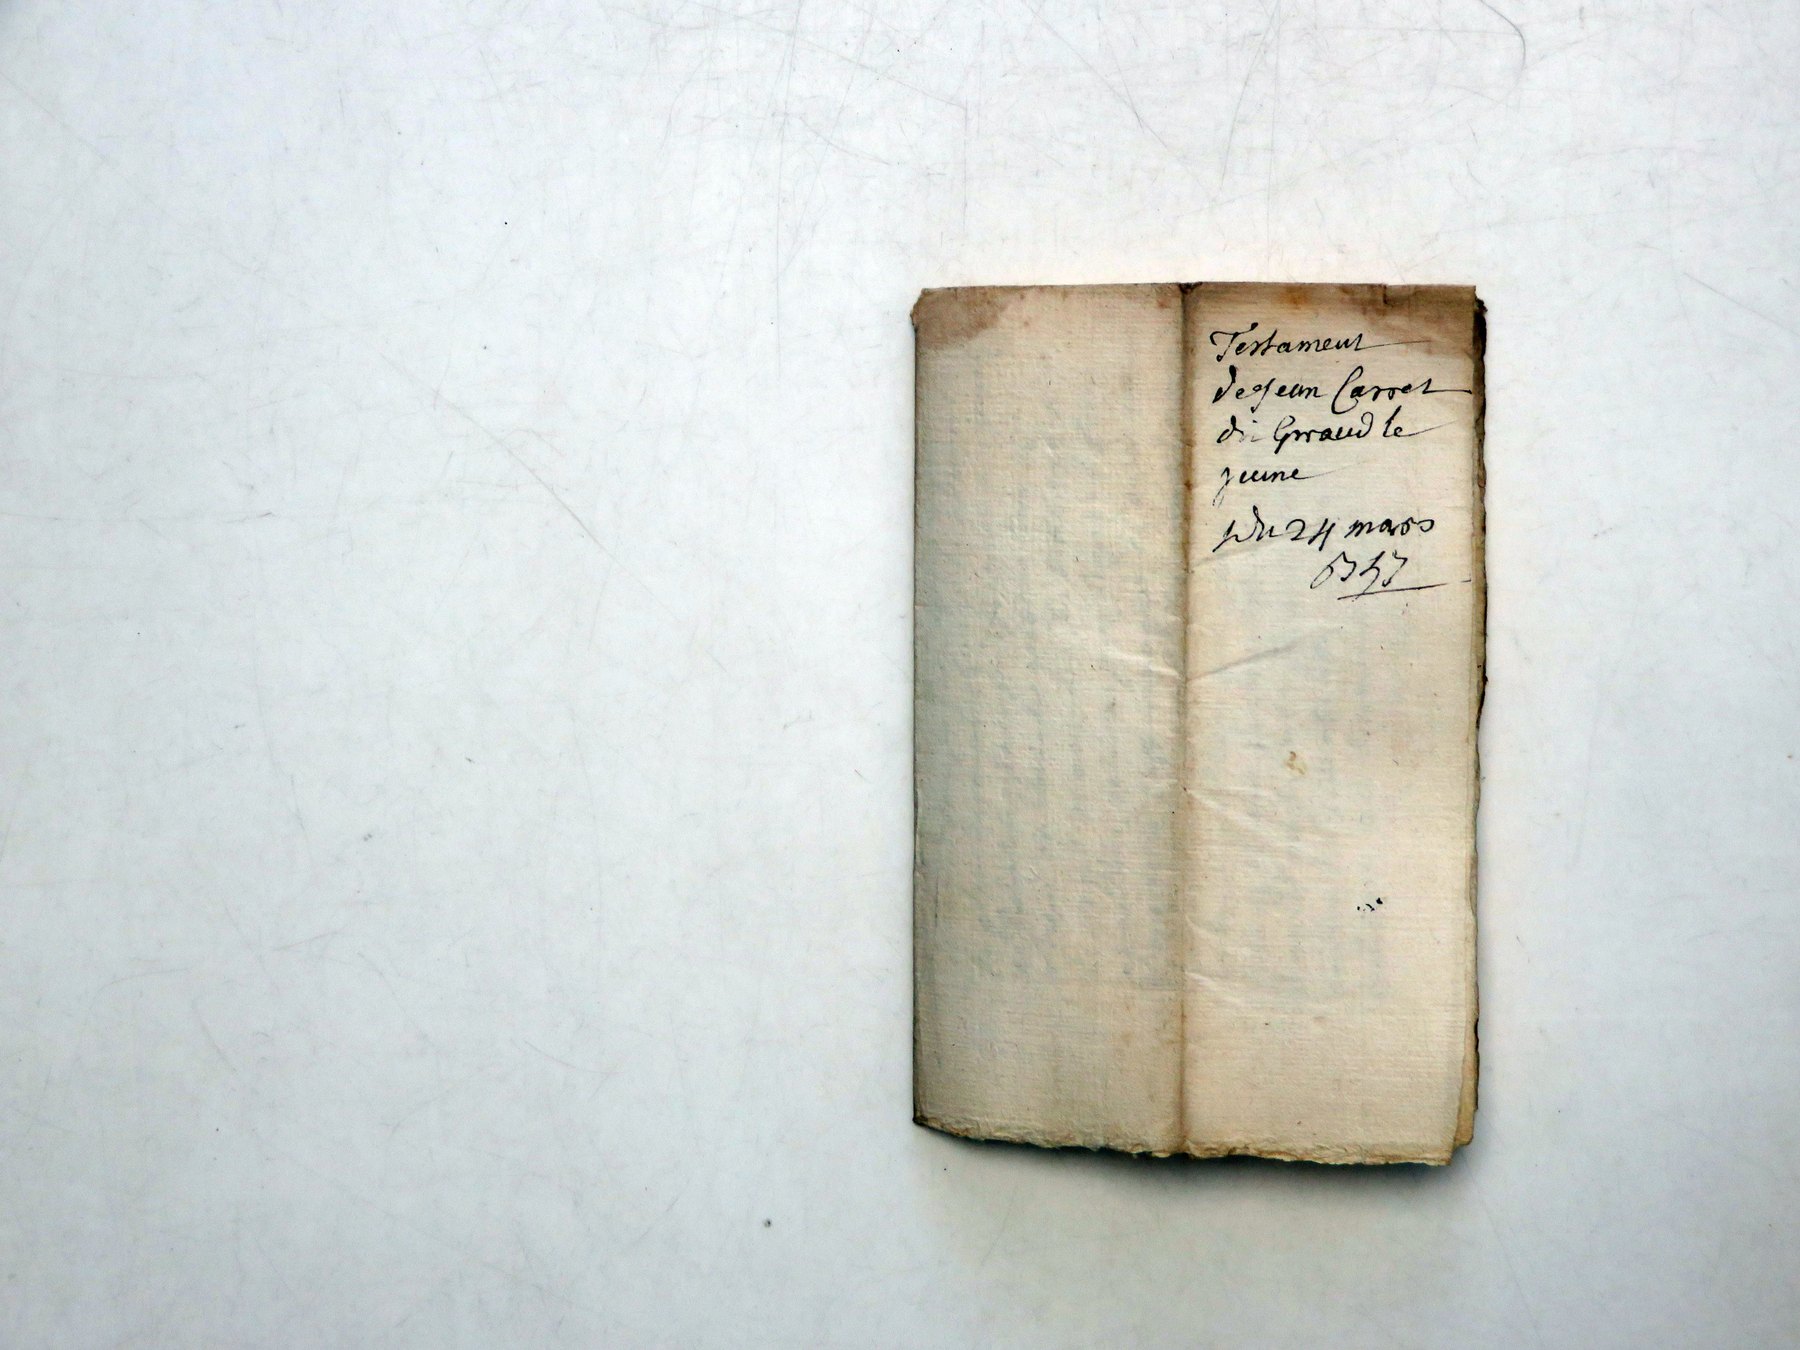 Testament
de Jean Carret
dit Giraud le
jeune
Du 24 mars